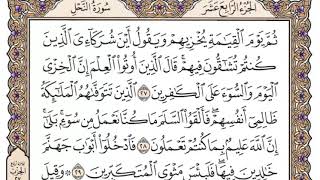 الجزء الرابع عشر
سورة النحل
ثُمَّ يَوْمَ الْقِيَٰمَةِ يُخْزِيهِمْ وَيَقُولُ أَيْنَ شُرَكَآءِىَ الَّذِينَ
كُنتُمْ تُشَٰٓقُّونَ فِيهِمْ ۚ قَالَ الَّذِينَ أُوتُوا۟ الْعِلْمَ إِنَّ الْخِزْىَ
الْيَوْمَ وَالسُّوٓءَ عَلَى الْكَٰفِرِينَ ٢٧ الَّذِينَ تَتَوَفَّىٰهُمُ الْمَلَٰٓئِكَةُ
ظَالِمِىٓ أَنفُسِهِمْ ۖ فَأَلْقَوُا۟ السَّلَمَ مَا كُنَّا نَعْمَلُ مِن سُوٓءٍۭ ۚ بَلَىٰٓ
إِنَّ اللَّهَ عَلِيمٌۢ بِمَا كُنتُمْ تَعْمَلُونَ ٢٨ فَادْخُلُوٓا۟ أَبْوَٰبَ جَهَنَّمَ
خَٰلِدِينَ فِيهَا ۖ فَلَبِئْسَ مَثْوَى الْمُتَكَبِّرِينَ ٢٩ ۞ وَقِيلَ
الحزب